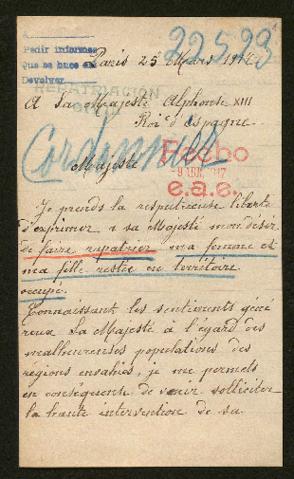 Pedir informes
Que se hace en
Devolver
22523
Paris 25 Mars 1917
REPATRIACION
A Sa Majesté Alphonse XIII
Roi d'Espagne.
Cordonnier
Hecho
9 ABR. 1917
e.a.e.
Majesté
Je prends la respectueuse liberté
d'exprimer à sa Majesté mon désir
de faire rapatrier ma femme et
ma fille restée en territoire
occupé.
Connaissant les sentiments géné
reux Sa Majesté à l'égard des
malheureuses populations des
régions envahies, je me permets
en conséquence de venir solliciter
la haute intervention de sa